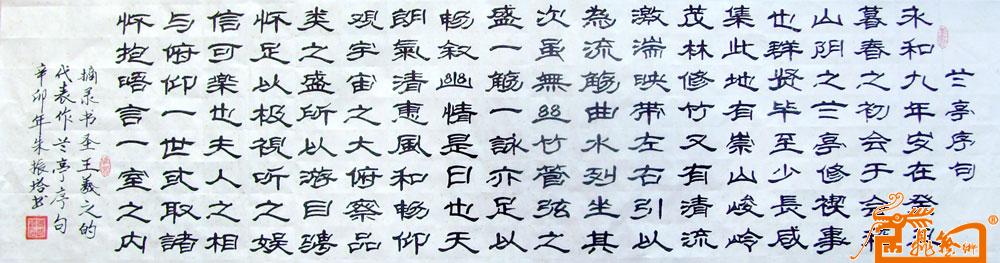 兰亭序句
永和九年岁在癸丑
暮春之初会于会稽
山阴之兰亭修禊事
也群贤毕至少长咸
集此地有崇山峻岭
茂林修竹又有清流
激湍映带左右引以
為流觞曲水列坐其
次虽無丝竹管弦之
盛一觞一詠亦足以
畅叙幽情是日也天
朗氣清惠風和畅仰
观宇宙之大俯察品
类之盛所以游目骋
怀足以极視听之娱
信可樂也夫人之相
与俯仰一世或取諸
怀抱晤言一室之内
摘录书圣王羲之的
代表作兰亭序句
辛卯年朱振塔书